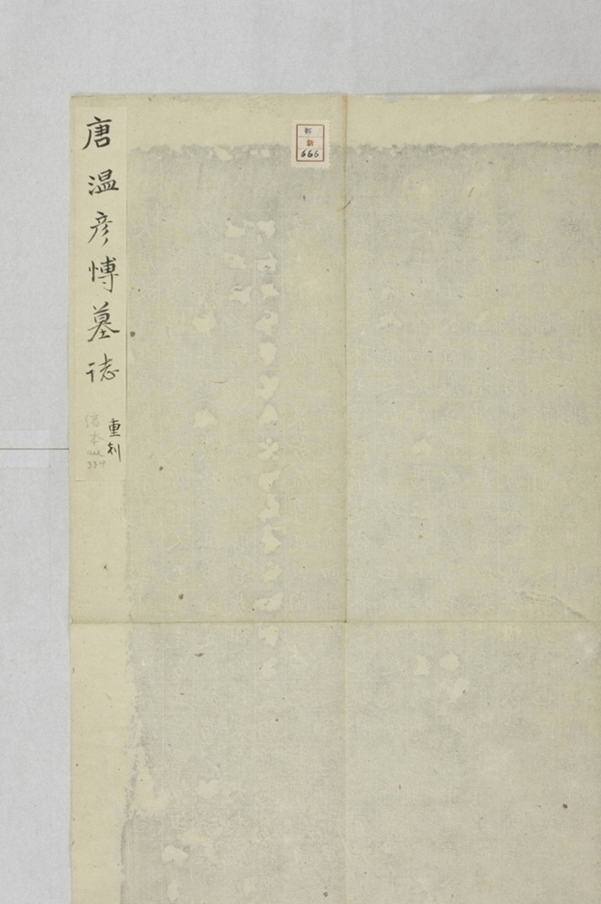 唐温彦博墓誌
重刻
新
666